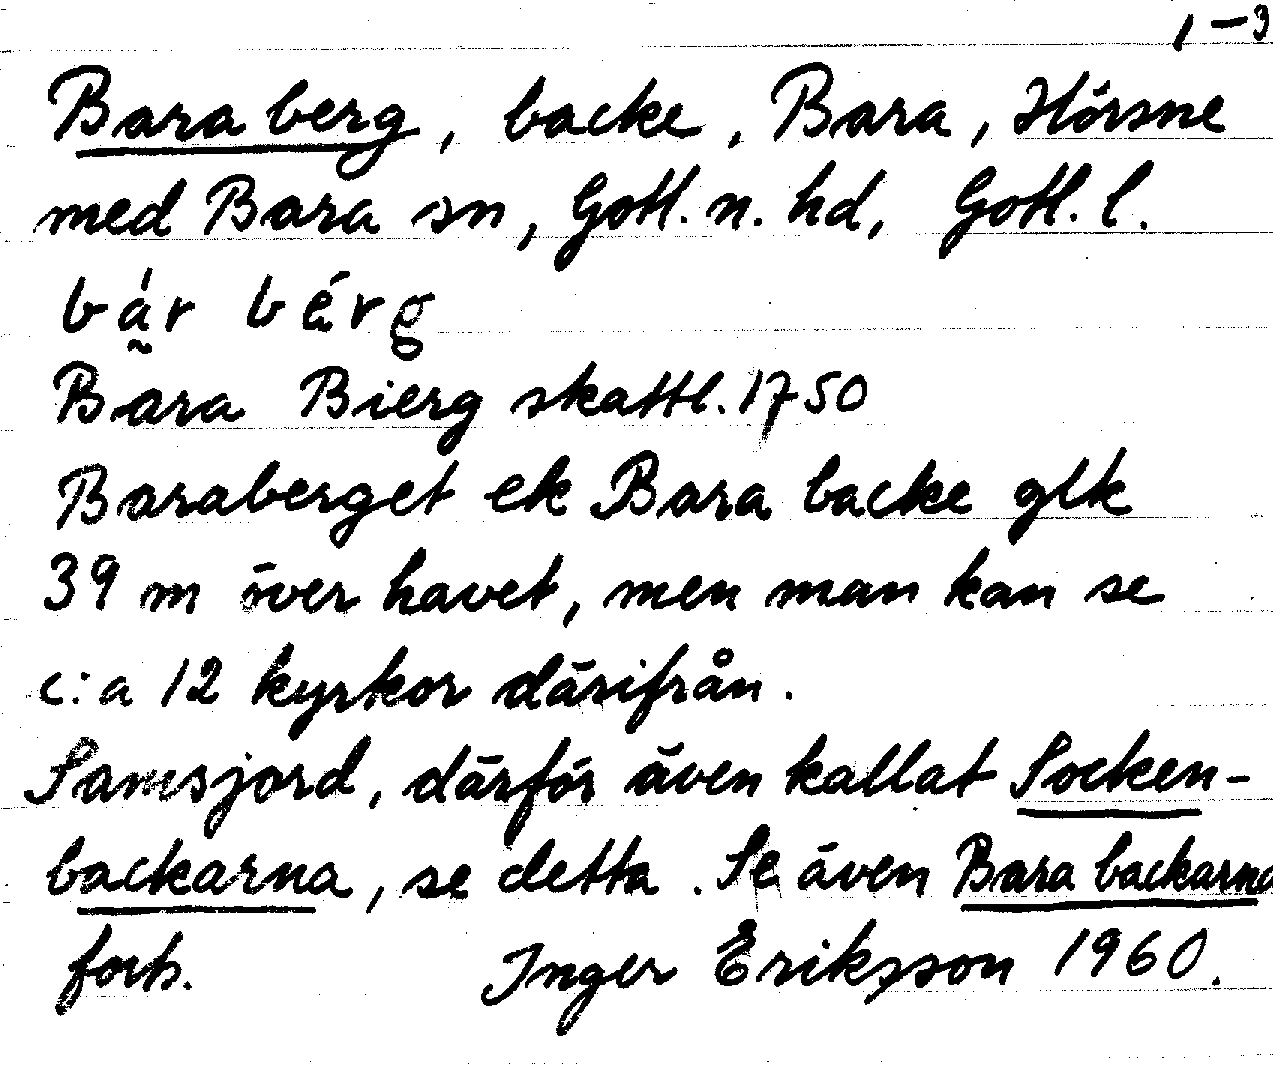 1-3
Bara berg, backe, Bara, Hörsne
med Bara sn, Gotl. n. hd, Gotl. l.
bá̰r bérg
Bara Bierg skattl. 1750
Baraberget ek Bara backe glk
39 m över havet, men man kan se
c:a 12 kyrkor därifrån.
Samsjord, därför även kallat Socken-
backarna, se detta. Se även Bara backarna
forts. Inger Eriksson 1960.